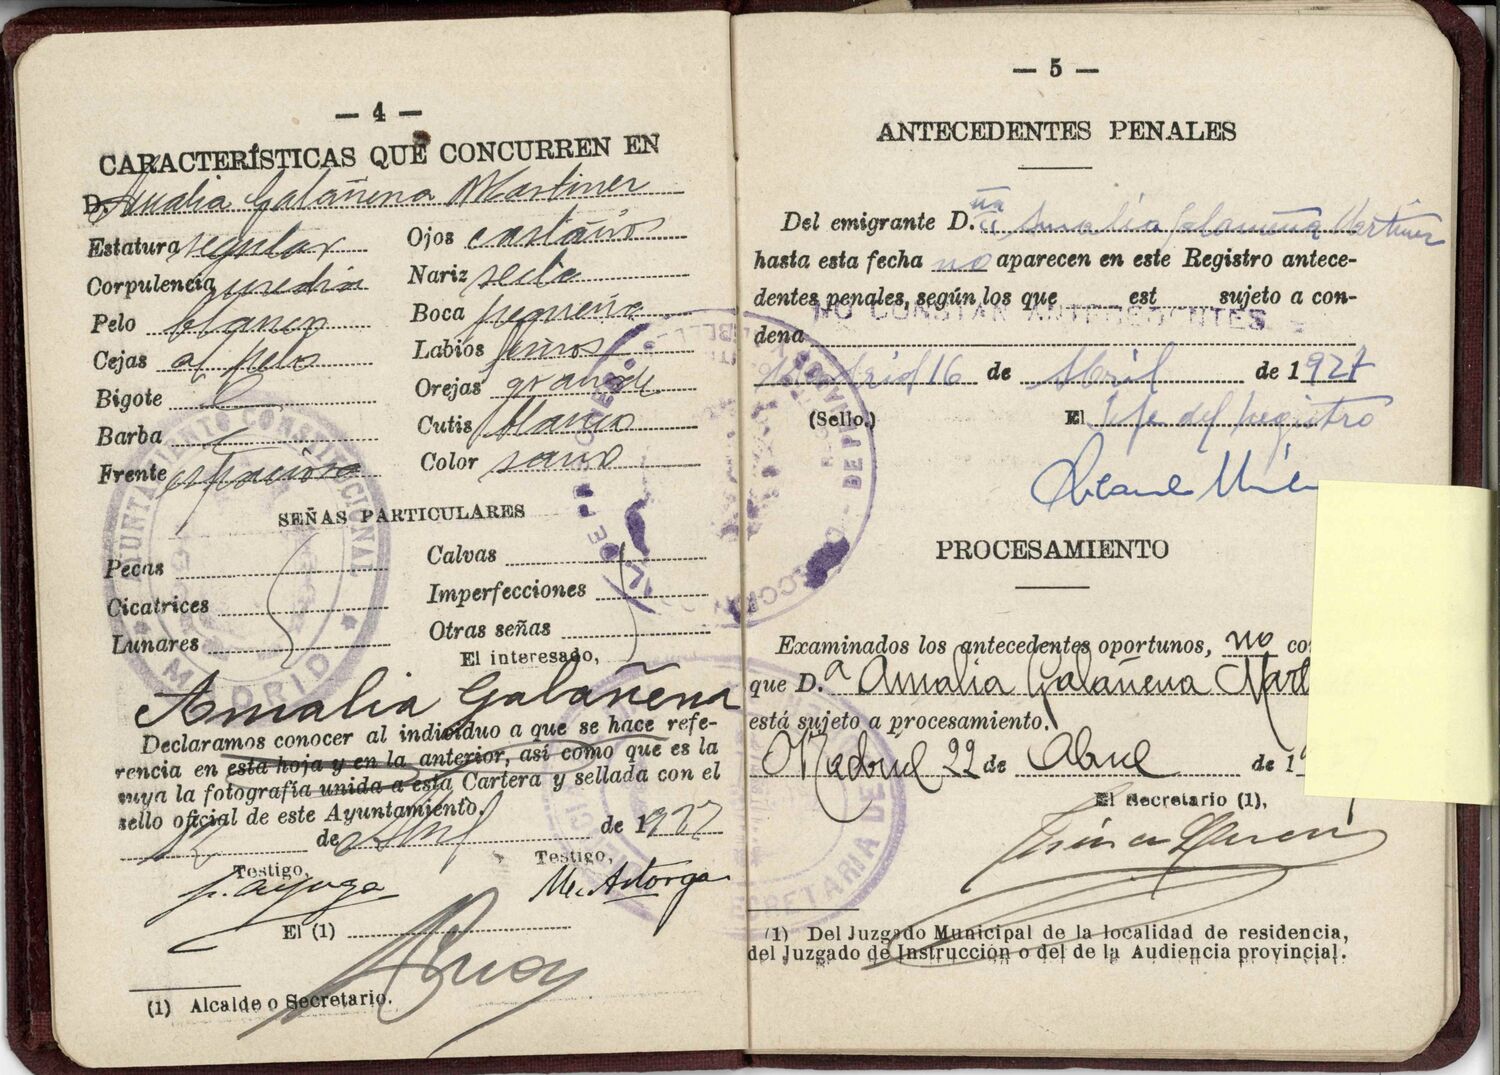 — 4 —
CARACTERÍSTICAS QUE CONCURREN EN
D. Amalia Galañena Martinez
Estatura regular
Corpulencia media
Pelo blanco
Cejas al pelo
Bigote
Barba
Frente espaciosa
Ojos castaños
Nariz recta
Boca pequeña
Labios finos
Orejas grande
Cutis blanco
Color sano
SEÑAS PARTICULARES
Pecas
Cicatrices
Lunares
Calvas
Imperfecciones
Otras señas
El interesado,
Amalia Galañena
Declaramos conocer al individuo a que se hace refe-
rencia en esta hoja y en la anterior, así como que es la
suya la fotografía unida a esta Cartera y sellada con el
sello oficial de este Ayuntamiento.
12 de Abril de 1927
Testigo,
Testigo,
Me. Astorga
El (1)
(1) Alcalde o Secretario.
AYUNTAMIENTO CONSTITUCIONAL
* MADRID *
— 5 —
ANTECEDENTES PENALES
Del emigrante D.ña Amalia Galañena Martinez
hasta esta fecha no aparecen en este Registro antece-
dentes penales, según los que est sujeto a con-
NO CONSTAN ANTECEDENTES
dena
Madrid 16 de Abril de 1927
(Sello.)
El Jefe del registro
PROCESAMIENTO
Examinados los antecedentes oportunos, no co
que D.ª Amalia Galañena Mart
está sujeto a procesamiento.
Madrid 22 de Abril de 1
El Secretario (1),
(1) Del Juzgado Municipal de la localidad de residencia,
del Juzgado de Instrucción o del de la Audiencia provincial.